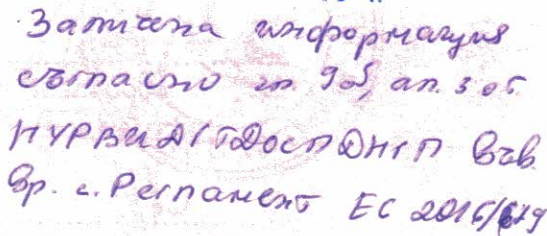 Заличена информация
съгласно чл. 9б, ал. 3 от
НУРВИДГТДОСПДНГП във
вр. с Регламент ЕС 2016/679